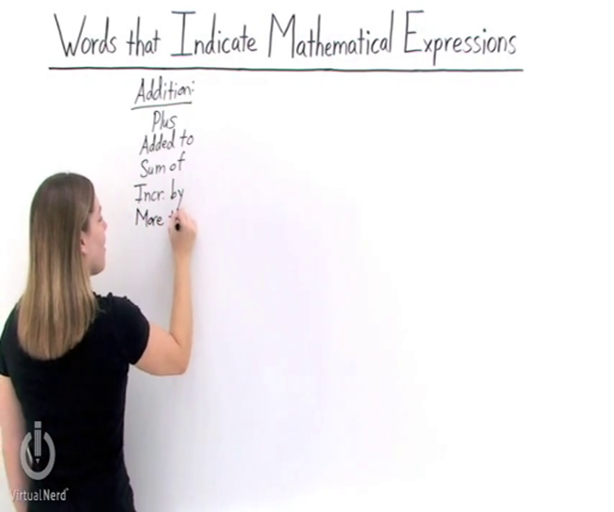 Words that Indicate Mathematical Expressions
Addition:
Plus
Added to
Sum of
Incr. by
More
VirtualNerd